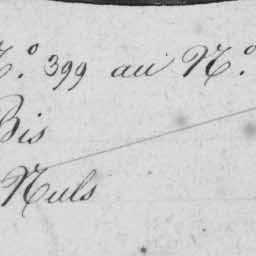 N.° 399 au N.°
Bis
Nuls